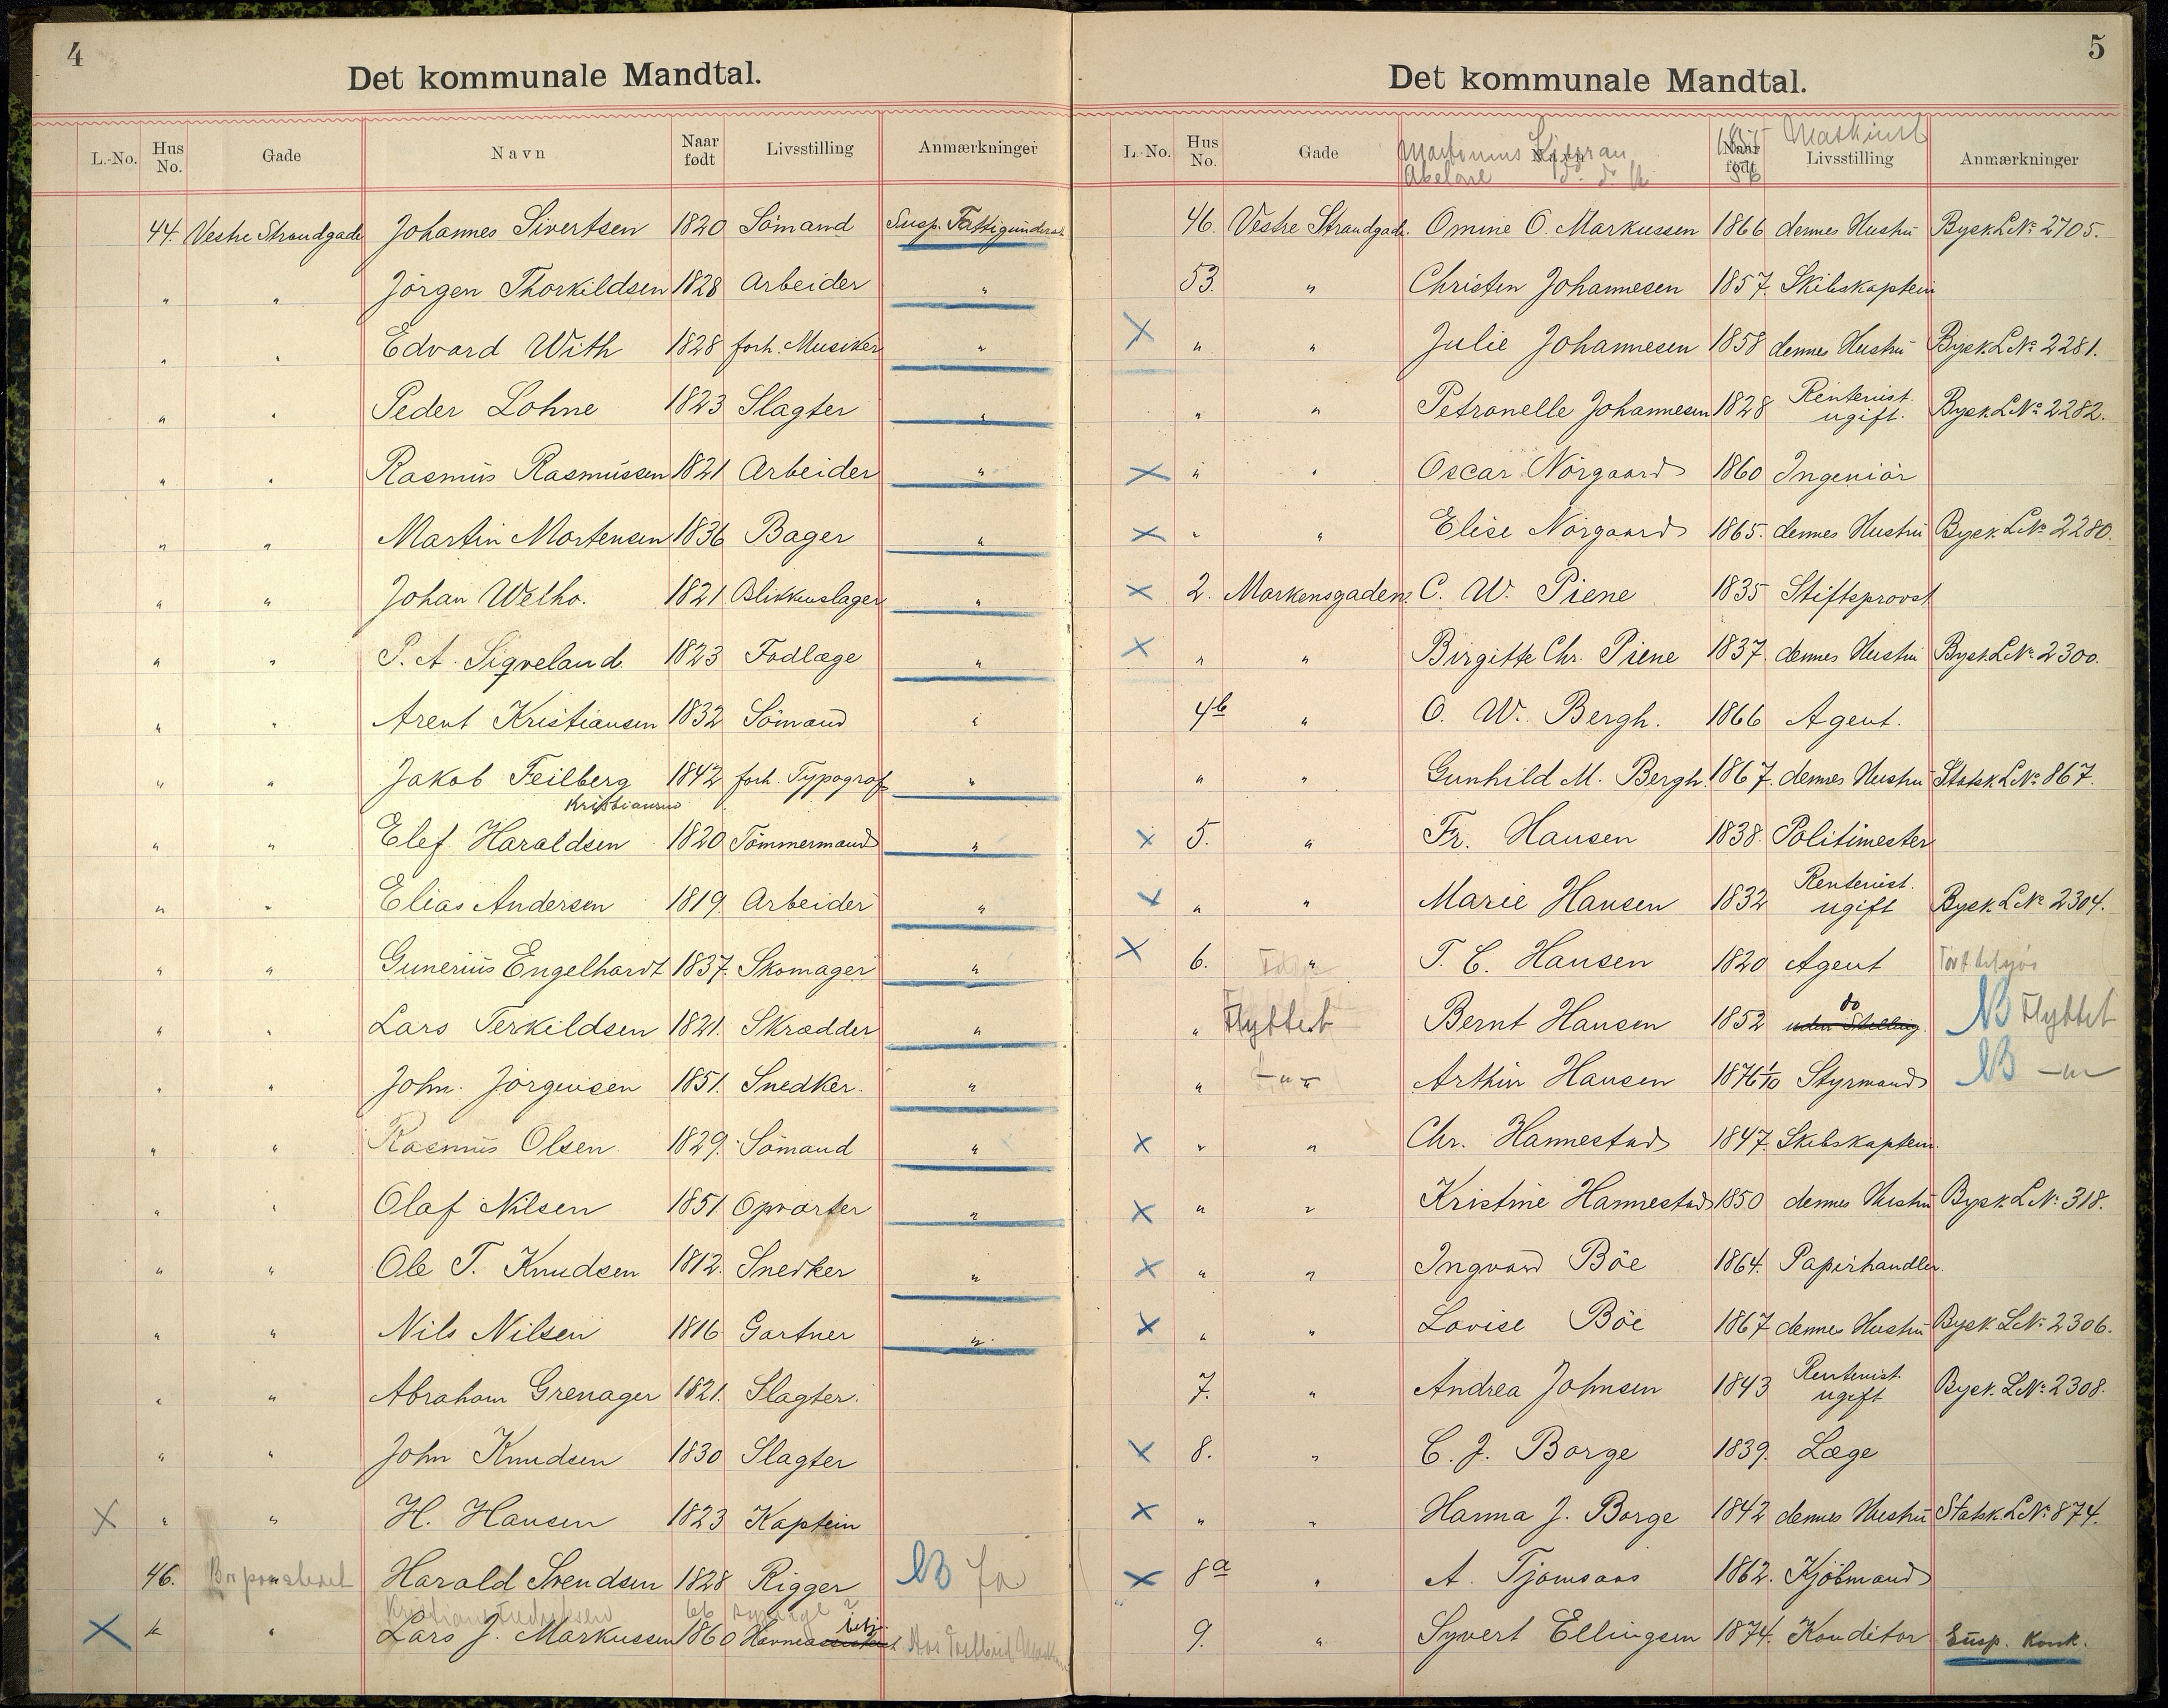 4
Det kommunale Mandtal.
L.-No. Hus No. Gade Navn Naar født Livsstilling Anmærkninger
44. Vestre Strandgade Johannes Sivertsen 1820 Sömand Susp. Fattigunderst
" " Jörgen Thorkildsen 1828 Arbeider "
" " Edvard With 1828 forh. Musiker "
" " Peder Lohne 1823 Slagter "
" " Rasmus Rasmussen 1821 Arbeider "
" " Martin Mortensen 1836 Bager "
" " Johan Welho. 1821 Blikkenslager "
" " P. A. Sigveland. 1823 Fodlæge "
" " Arent Kristiansen 1832 Sömand "
" " Jakob Feilberg 1842 forh. Typograf "
Kristiansen
" " Elef Haraldsen 1820 Tömmermand "
" " Elias Andersen 1819. Arbeider "
" " Gunerius Engelhardt 1837. Skomager "
" " Lars Terkildsen 1821. Skrædder "
" " John. Jörgensen 1851. Snedker. "
" " Rasmus Olsen 1829. Sömand "
" " Olaf Nilsen 1851 Opvarter "
" " Ole T. Knudsen 1812. Snedker "
" " Nils Nilsen 1816 Gartner "
" " Abraham Grenager 1821. Slagter.
" " John Knudsen 1830 Slagter
X " " H. Hansen 1823 Kaptein
46. " Harald Svendsen 1828 Rigger NB Ja
Kristiane Fredriksen
X " " Lars J. Markussen 1860 Havneassistent
5
Det kommunale Mandtal.
Maskinist
L.-No. Hus No. Gade Navn Naar født Livsstilling Anmærkninger
46. Vestre Strandgade. Omine O. Markussen 1866 dennes Hustru Bysk. L№ 2705.
53. " Christen Johannesen 1857. Skibskaptein
X " " Julie Johannesen 1858 dennes Hustru Bysk. L№ 2281.
" " Petronelle Johannesen 1828 Rentenist. ugift. Bysk. L№ 2282.
X " " Oscar Nörgaard 1860 Ingeniör
X " " Elise Nörgaard 1865. dennes Hustru Bysk. L№ 2280.
X 2. Markensgaden. C. W. Piene 1835 Stiftsprovst
X " " Birgitte Chr. Piene 1837. dennes Hustru Bysk. L№ 2300.
4b " O. W. Bergh. 1866 Agent.
" " Gunhild M. Bergh. 1867. dennes Hustru Statsk. L№ 867.
X 5. " Fr. Hansen 1838. Politimester
X " " Marie Hansen 1832 Rentenist. ugift Bysk. L№ 2304.
X 6. " T. C. Hansen 1820 Agent
" Flyttet Bernt Hansen 1852 do uden Stilling NB Flyttet
" -"- Arthur Hansen 1876 1/10 Styrmand NB -"-
X " " Chr. Hannestad 1847. Skibskaptein.
X " " Kristine Hannestad 1850 dennes Hustru Bysk. L№ 318.
X " " Ingvard Böe 1864. Papirhandler.
X " " Lovise Böe 1867 dennes Hustru Bysk. L№ 2306.
7. " Andrea Johnsen 1843 Rentenist. ugift Bysk. L№ 2308.
X 8. " C. J. Borge 1839. Læge
X " " Hanna J. Borge 1842 dennes Hustru Statsk. L№ 874.
X 8a " A. Tjomsaas 1862. Kjöbmand
9. " Syvert Ellingsen 1874. Konditor Susp. Konk.